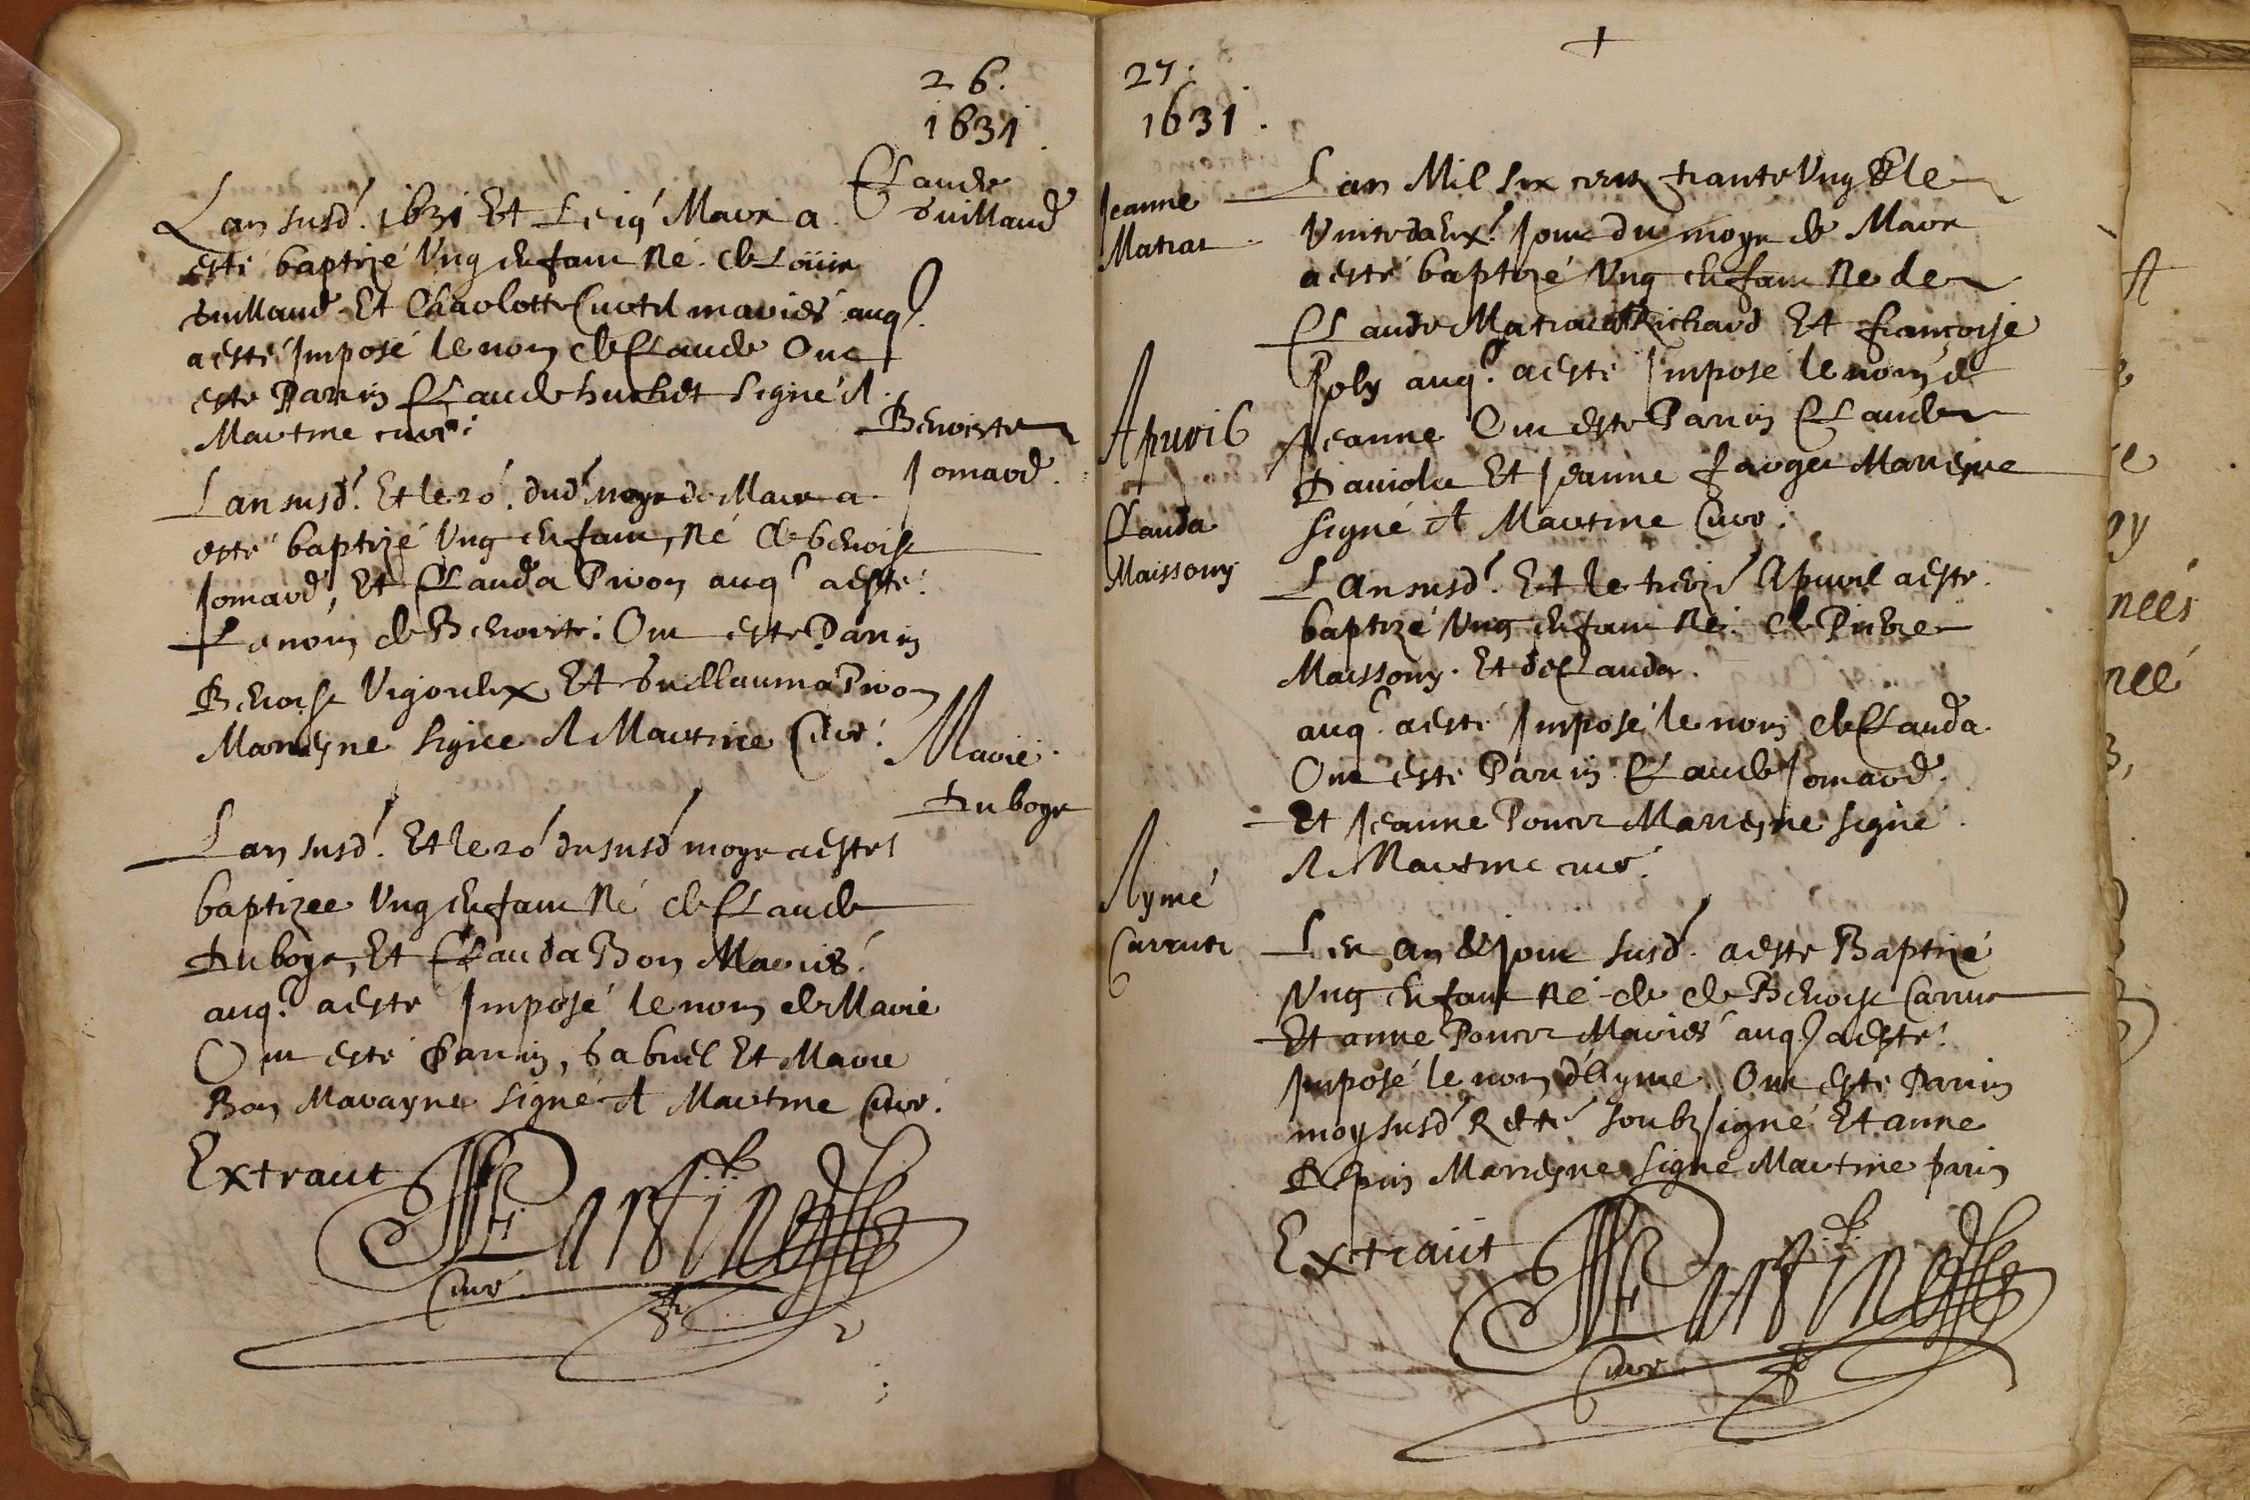 26.
1631.
Claude
Guillaud
Lan susd. 1631 Et Le iq Mars a
esté baptizé Ung enfant Né de Loüis
Guillaud Et Charlotte mariés auq.
a esté Imposé le nom de Claude Ont
este Parrin Claude huchet Signé A.
Martine curé
Benoiste
Jomard.
Lan susd. Et le 20. dud. moys de Mars a
esté baptizé Ung enfant, Né de benoist
Jomard, Et Clauda Pivon auq. a esté
Le nom de Benoiste: Ont este Parrin
Benoist Vigoulux Et Guillauma Pivon
Marreyne Signé A Martine Curé.
Marie
Duboys
Lan susd. Et le 20 du susd moys a esté
baptizee Ung enfant Né de Claude
Duboys, Et Clauda Bon Mariés
auq. a esté Imposé le nom de Marie
Ont esté Parrin, Gabriel Et Marie
Bon Marayne Signé A Martine Curé.
Extraict
Martine
Curé
27.
1631.
Jeanne
Matrat
Lan Mil six cent trante Ung & le
Vintedeux. Jour du moys de Mars
a esté baptizé Ung enfant Né de
Claude Matrat Richard Et françoise
Joly auq. a esté Imposé le nom de
Jeanne Ont este Parrin Claude
Et Jeanne farges Marreyne
Signé A Martine Curé.
Apvril
Clauda
Maissony
Lan susd. Et le Apvril a esté
baptizé Ung enfant Né. de Pierre
Maissony. Et de Clauda.
auq. a esté Imposé le nom de Clauda.
Ont esté Parrin Claude Jomard.
Et Jeanne Poncet Marreyne signé
A Martine curé.
Aymé
Carrut
Les an & jour susd. a esté Baptizé
Ung enfant Né de de Benoist Carrut
Et anne Poncet Mariés auq. a esté
Imposé le nom d'Ayme. Ont esté Parrin
moy susd. soubsigné Et anne
Marreyne Signé Martine parin
Extraict
Martine
Curé